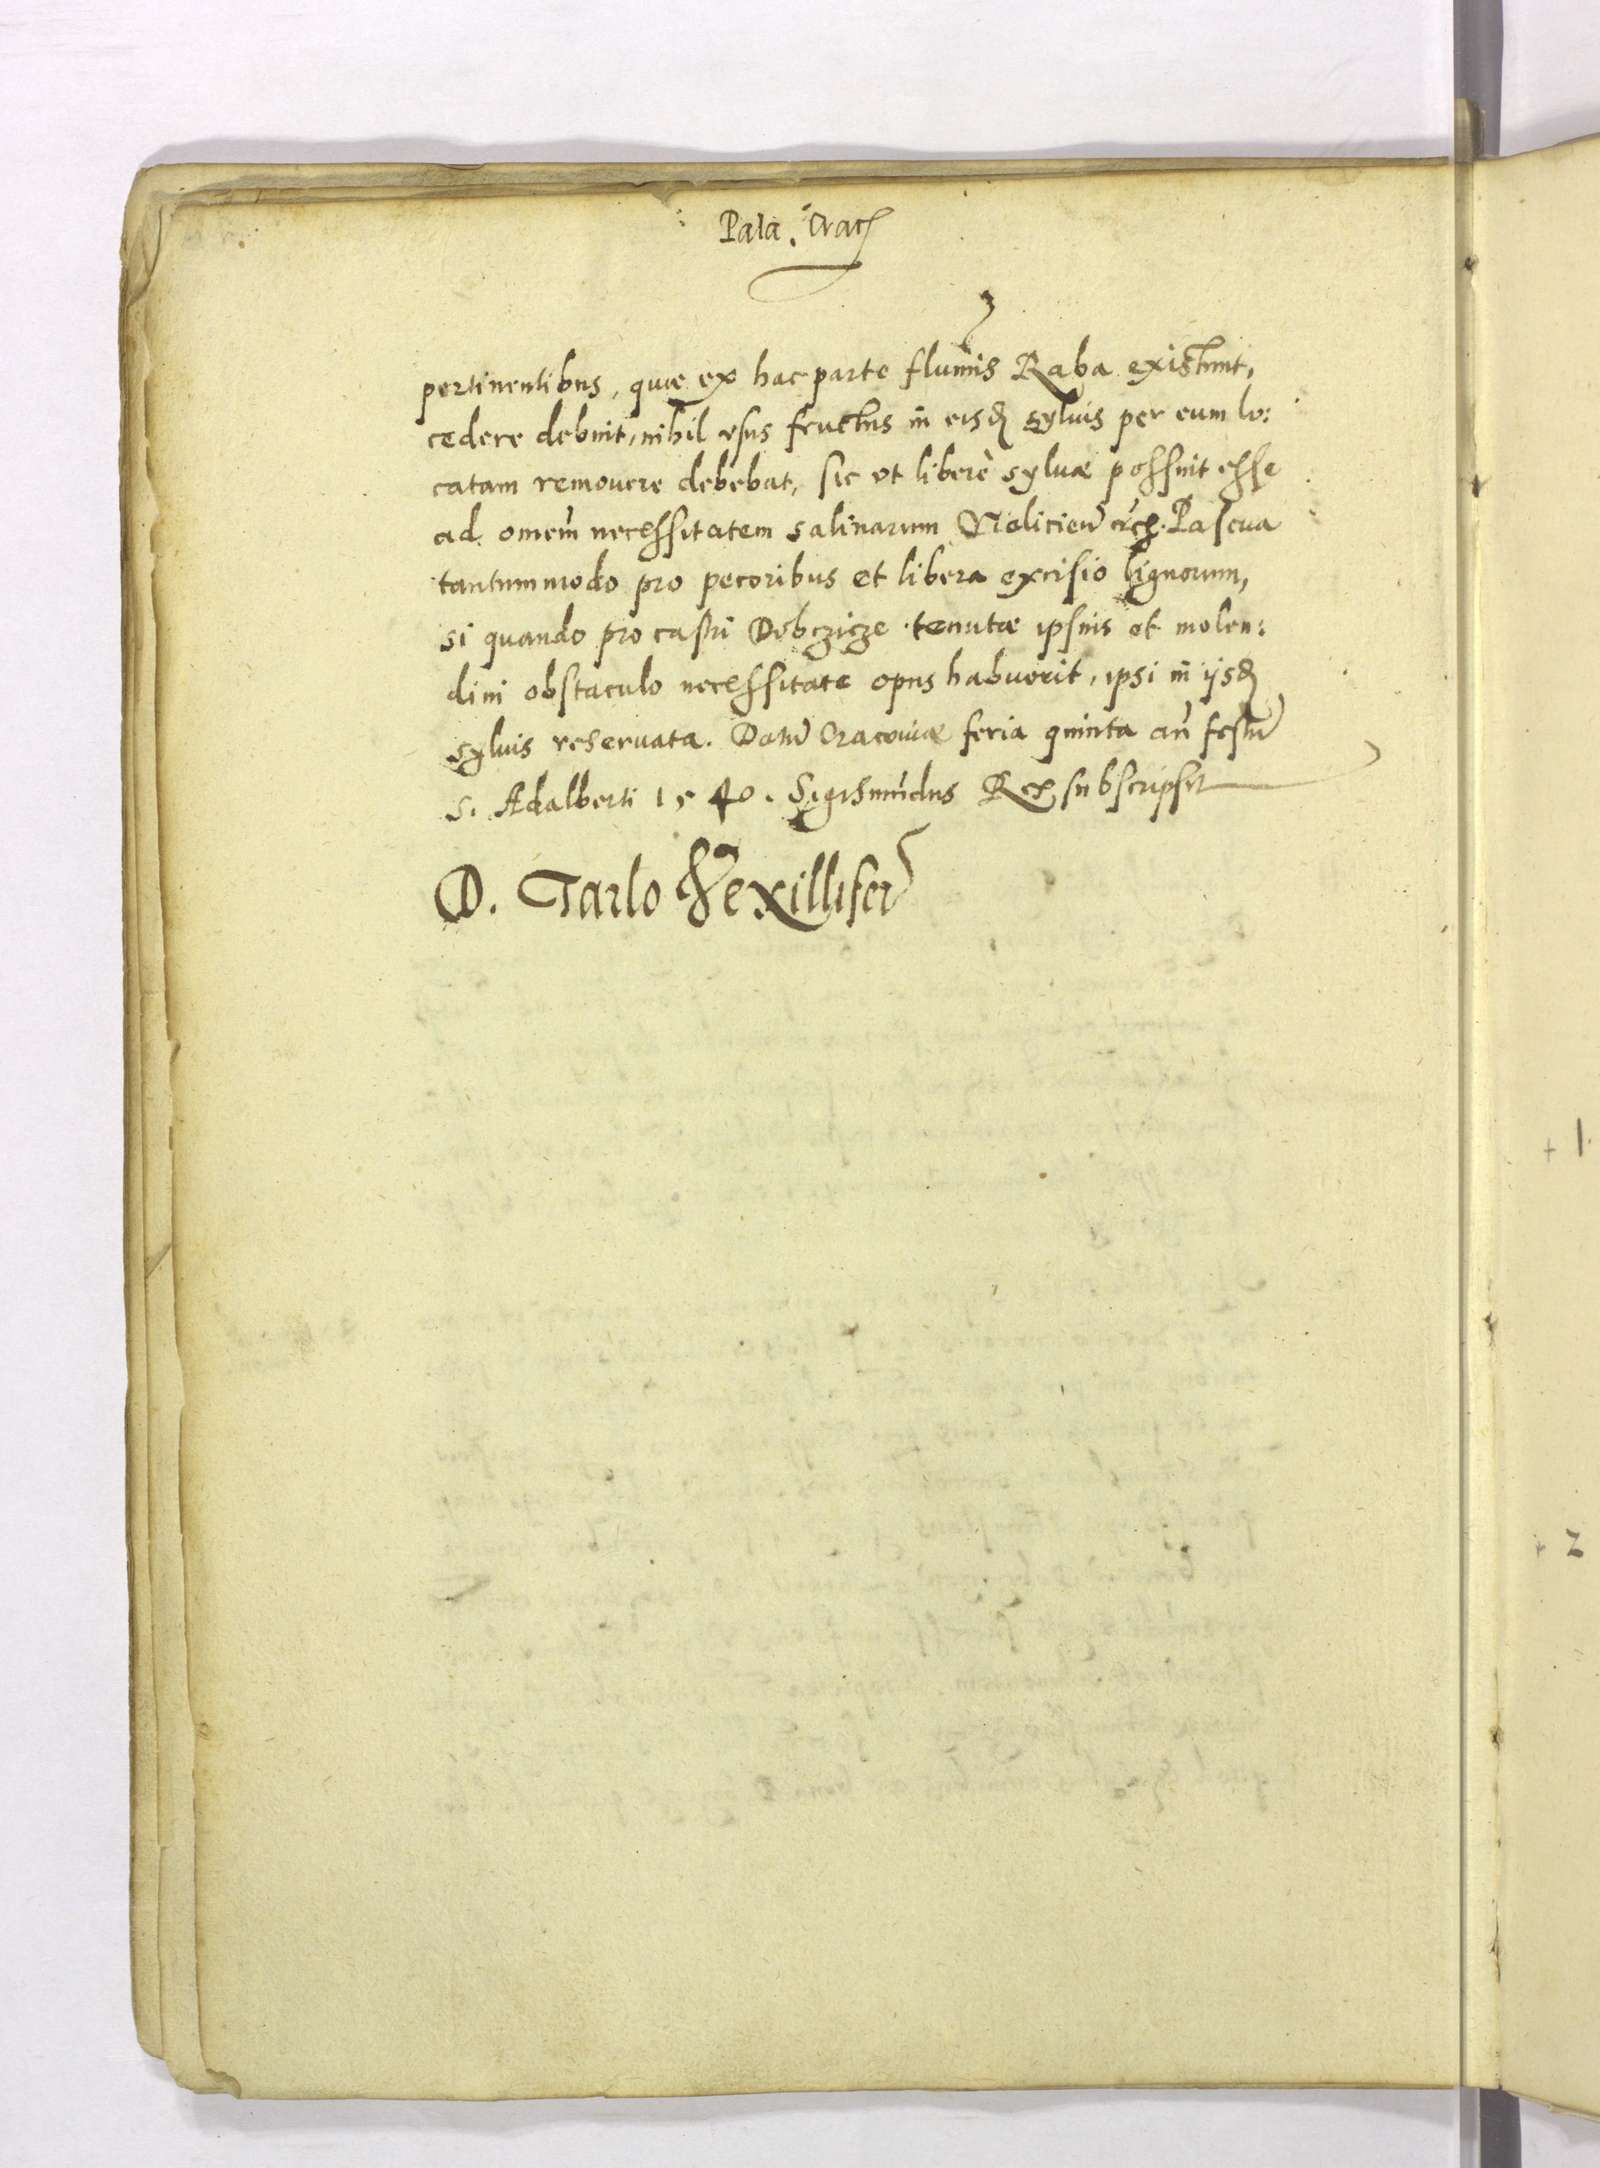 Pala. Crac
pertinentibus, quæ ex hac parte fluminis Raba existunt,
cedere debuit, nihil usus fructus in eisd sylvis per eum lo:
catam removere debebat, sic ut liberè sylvæ possint esse
ad omem necessitatem salinarum Vieliciem Pascua
tantummodo pro pecoribus et libera excisio lignorum,
si quando pro castri Dobczicze tenutæ ipsius et molen:
dini obstaculo necessitate opus habuerit, ipsi in ijsd
sylvis reservata. Datum Cracoviæ feria quinta an festum
S. Adalberti 1540. Sigismundus Rex subscripsit
D. Tarlo Vexillifer
+ 1.
+ 2